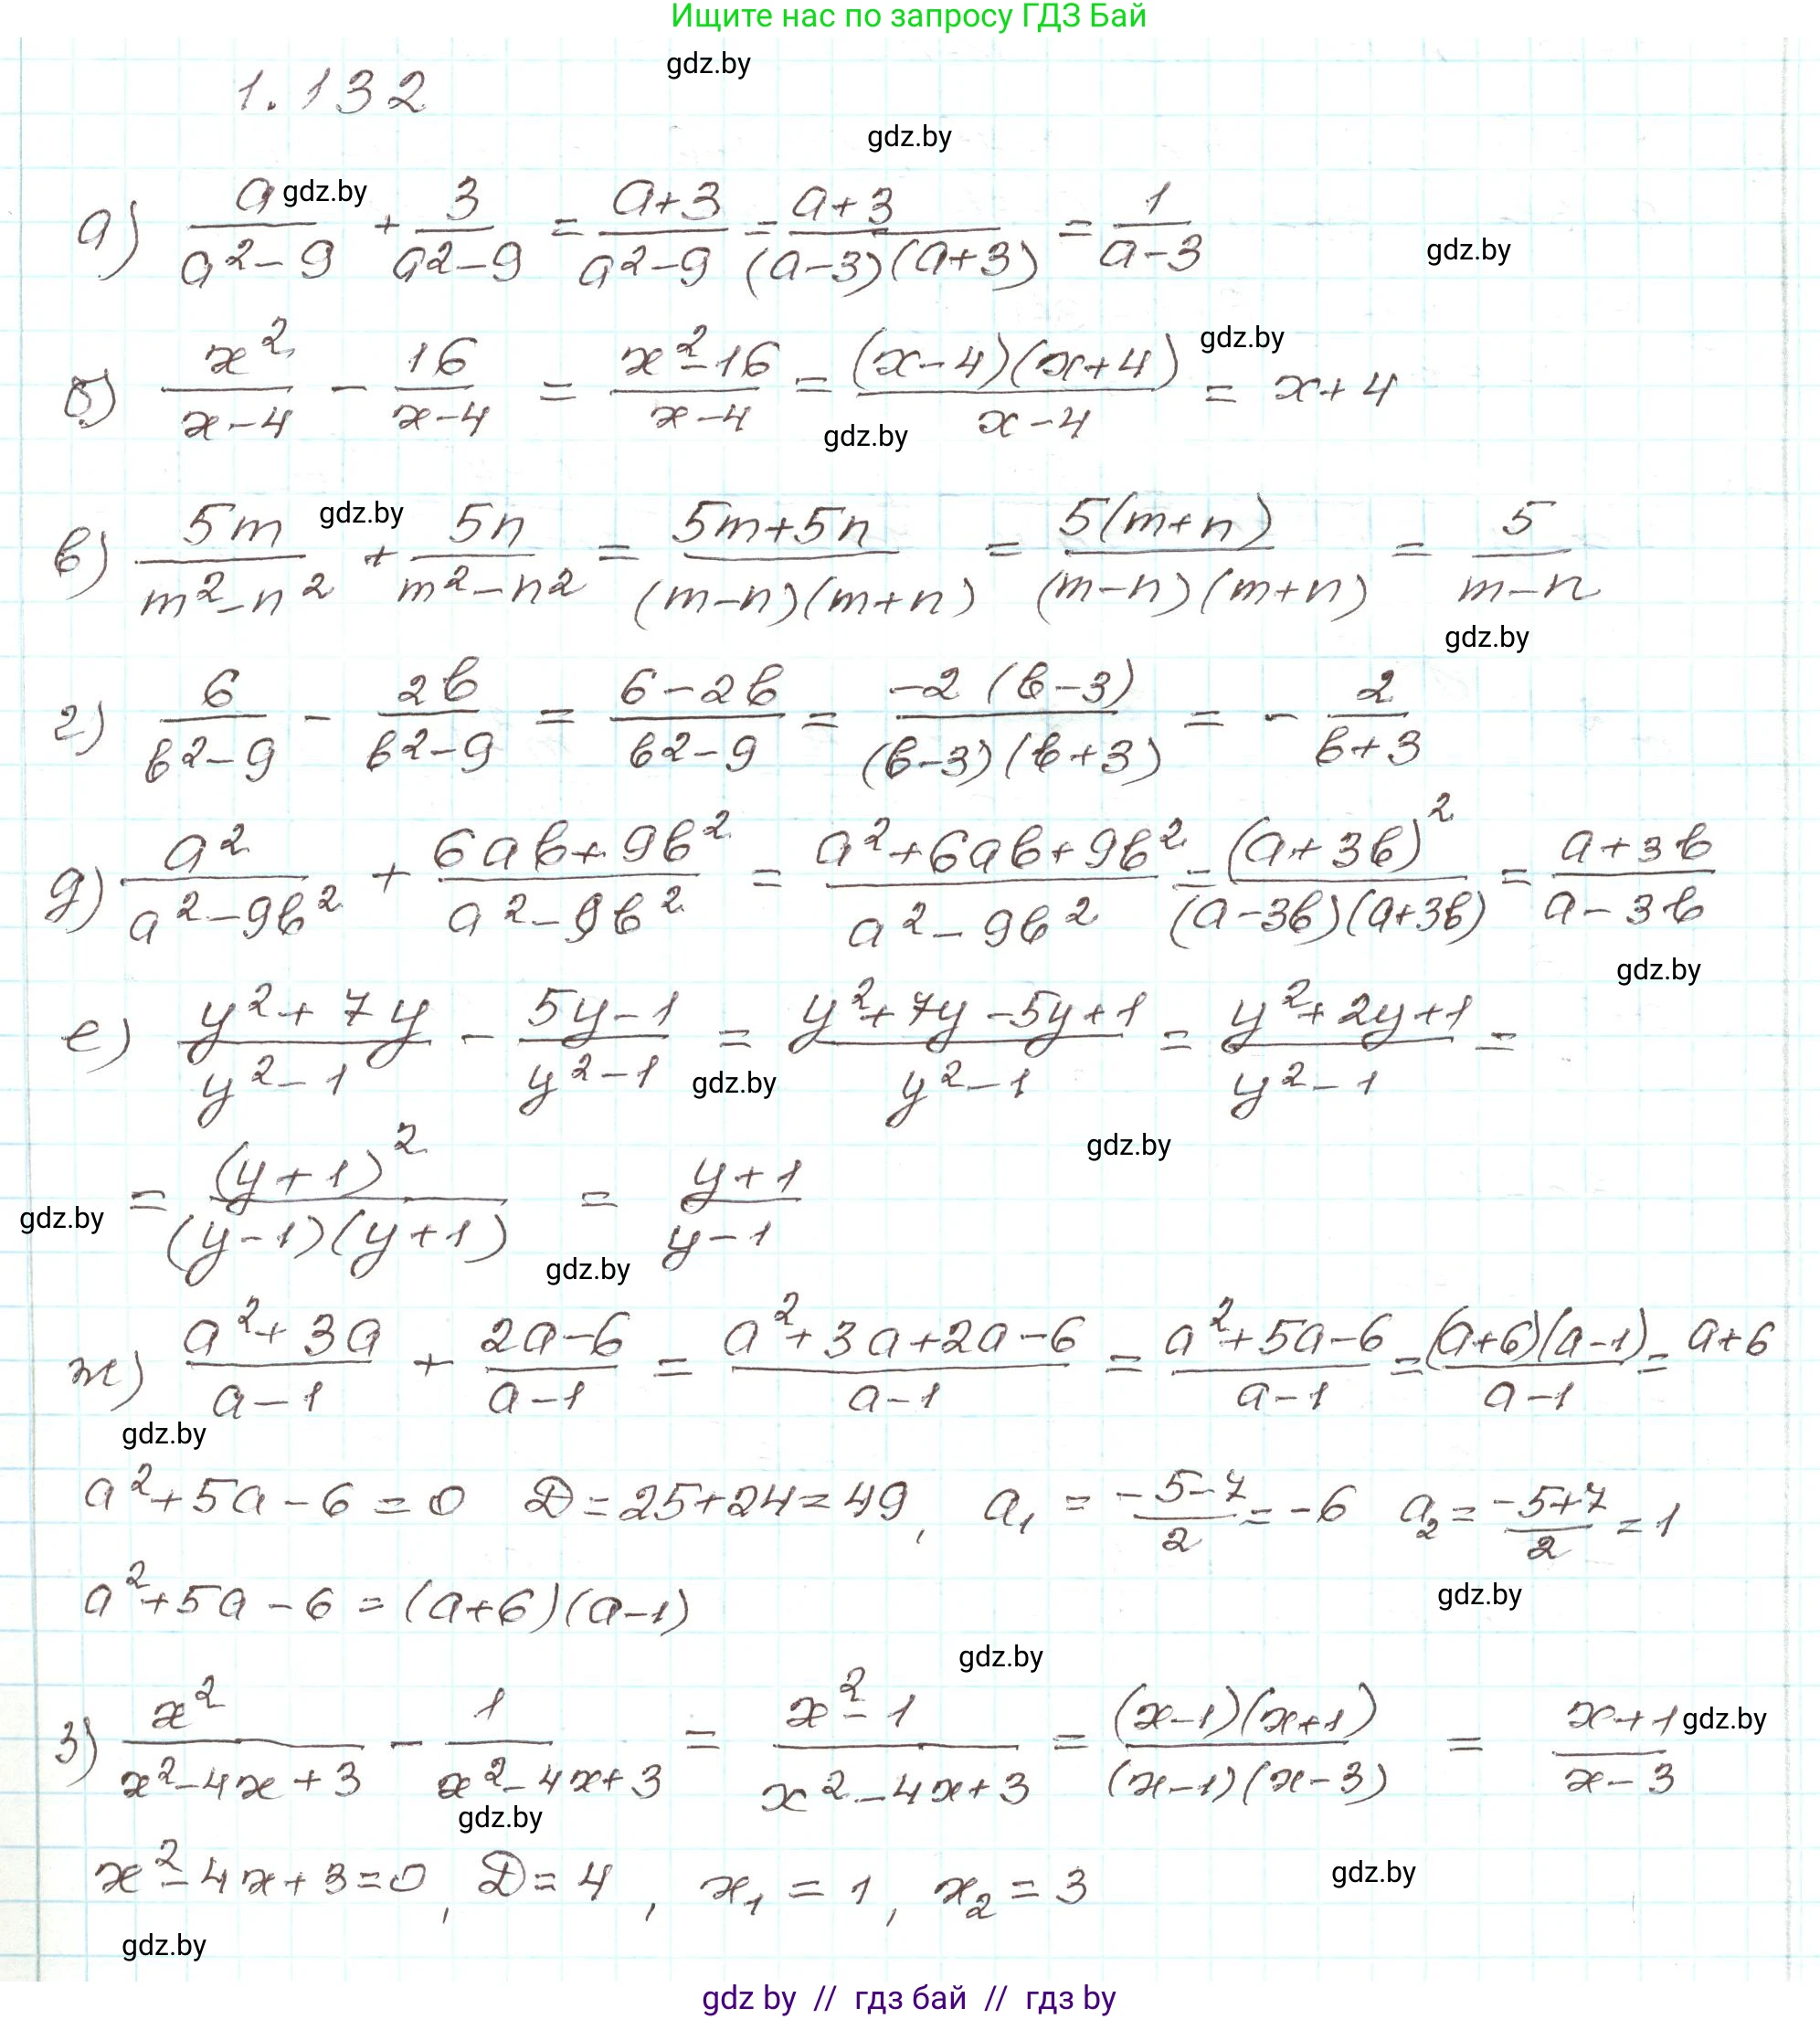 Ищите нас по запросу ГДЗ Бай
gdz.by
1.132
gdz.by
а) a/(a²-9) + 3/(a²-9) = (a+3)/(a²-9) = (a+3)/((a-3)(a+3)) = 1/(a-3)
gdz.by
gdz.by
б) x²/(x-4) - 16/(x-4) = (x²-16)/(x-4) = ((x-4)(x+4))/(x-4) = x+4
gdz.by
gdz.by
в) 5m/(m²-n²) + 5n/(m²-n²) = (5m+5n)/((m-n)(m+n)) = 5(m+n)/((m-n)(m+n)) = 5/(m-n)
gdz.by
gdz.by
г) 6/(b²-9) - 2b/(b²-9) = (6-2b)/(b²-9) = -2(b-3)/((b-3)(b+3)) = - 2/(b+3)
д) a²/(a²-9b²) + (6ab+9b²)/(a²-9b²) = (a²+6ab+9b²)/(a²-9b²) = (a+3b)²/((a-3b)(a+3b)) = (a+3b)/(a-3b)
gdz.by
е) (y²+7y)/(y²-1) - (5y-1)/(y²-1) = (y²+7y-5y+1)/(y²-1) = (y²+2y+1)/(y²-1) =
gdz.by
gdz.by
= (y+1)²/((y-1)(y+1)) = (y+1)/(y-1)
gdz.by
gdz.by
ж) (a²+3a)/(a-1) + (2a-6)/(a-1) = (a²+3a+2a-6)/(a-1) = (a²+5a-6)/(a-1) = ((a+6)(a-1))/(a-1) = a+6
gdz.by
a²+5a-6=0 D=25+24=49, a₁ = (-5-7)/2 = -6 a₂ = (-5+7)/2 = 1
a²+5a-6=(a+6)(a-1)
gdz.by
gdz.by
з) x²/(x²-4x+3) - 1/(x²-4x+3) = (x²-1)/(x²-4x+3) = ((x-1)(x+1))/((x-1)(x-3)) = (x+1)/(x-3)
gdz.by
gdz.by
x²-4x+3=0, D=4, x₁=1, x₂=3
gdz.by
gdz.by
gdz by // гдз бай // гдз by